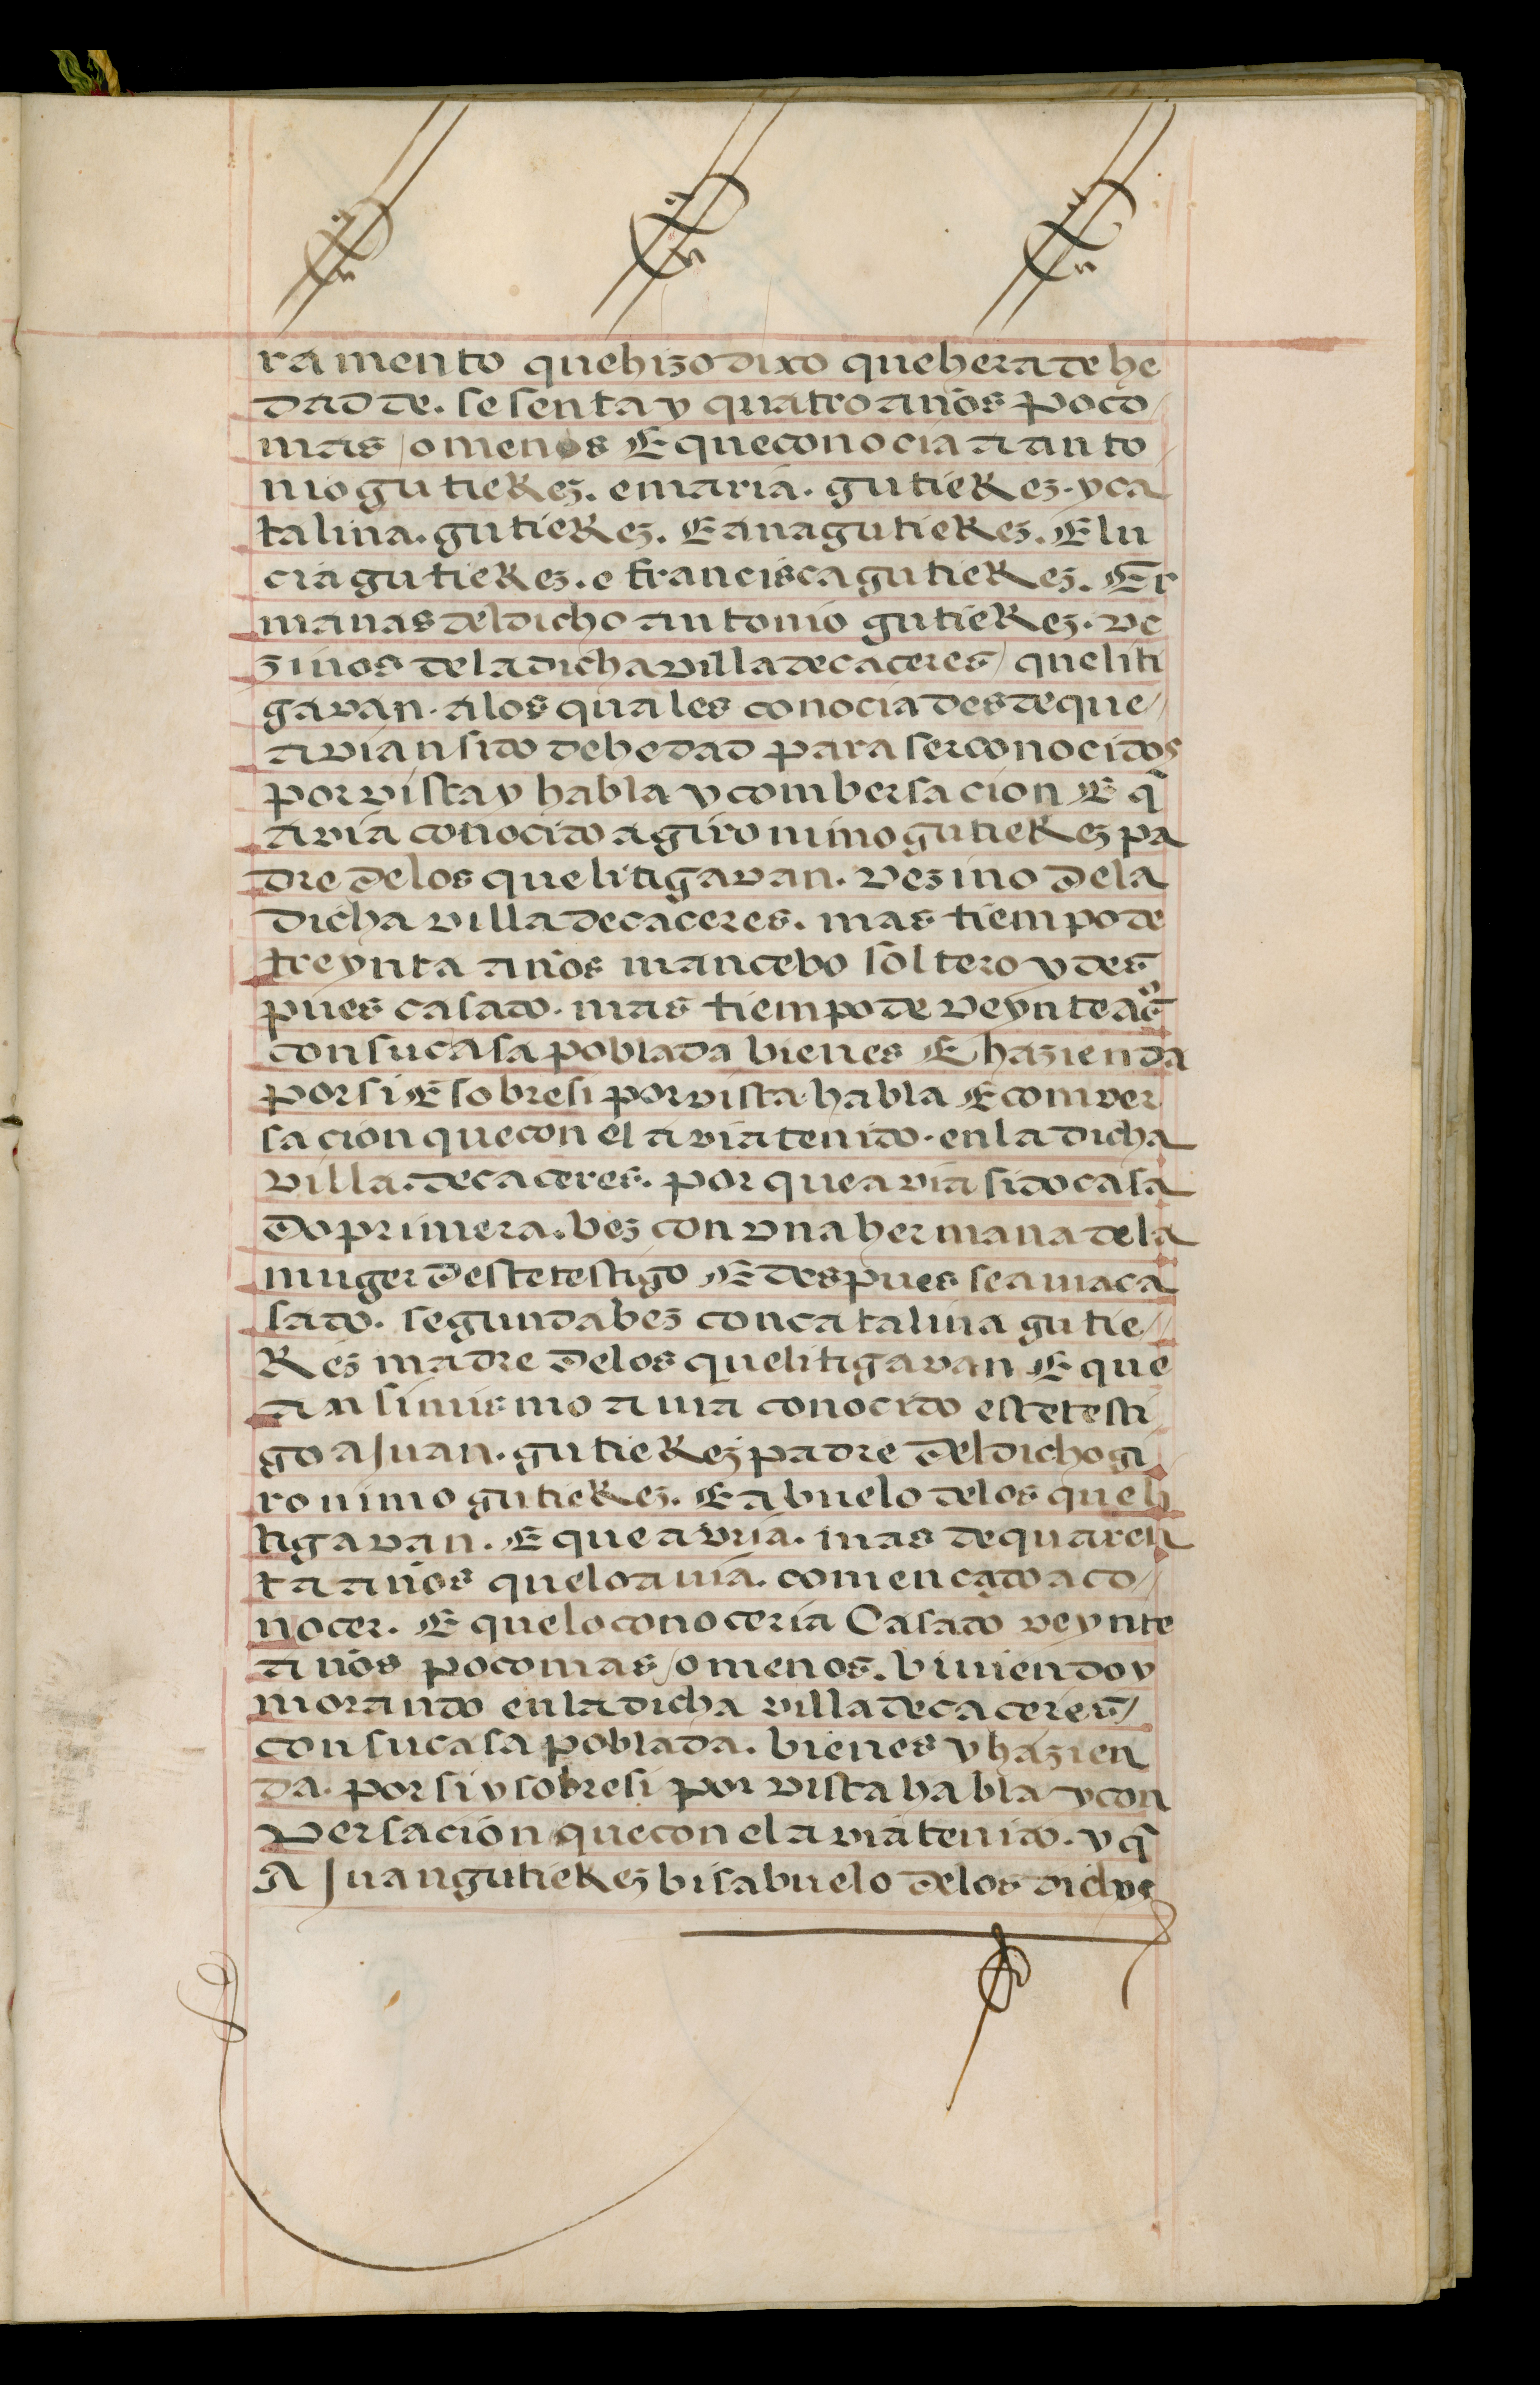 ramento que hizo dixo que hera de he
dad de. sesenta y quatro años poco
mas / o menos E que conocia a anto
nio gutieRez. e maria. gutieRez. y ca
talina. gutieRez. E ana gutieRez. E lu
cia gutieRez. e francisca gutieRez. Er
manas del dicho antonio gutieRez. ve
zinos de la dicha villa de caceres / que liti
gavan. a los quales conocia desde que /
avian sido de hedad para ser conocidos
por vista y habla y combersacion E q̃
avia conocido a gironimo gutieRez pa
dre de los que litigavan. vezino de la
dicha villa de caceres. mas tiempo de
treynta años mancebo soltero y des
pues casado. mas tiempo de veynte aos
con su casa poblada bienes E hazienda
por si E sobre si por vista habla E conver
sacion que con el avia tenido. en la dicha
villa. de caceres. por que avia sido casa
do primera. bez con vna hermana de la
muger deste testigo E despues se auia ca
sado. segunda bez con catalina gutie /
Rez madre de los que litigavan E que
ansimismo auia conocido este testi
go a Juan. gutieRez padre del dicho gi
ronimo gutieRez. E abuelo de los que li
tigavan. E que avria. mas de quaren
ta años que lo auia. comencado a co /
nocer. E que lo conoceria Casado veynte
años poco mas / o menos. biuiendo y
morando en la dicha villa de caceres /
con su casa poblada. bienes y hazien
da. por si y sobre si por vista habla y con
versacion que con el avia tenido. y q̃
A Juan gutieRez bisabuelo de los dichos